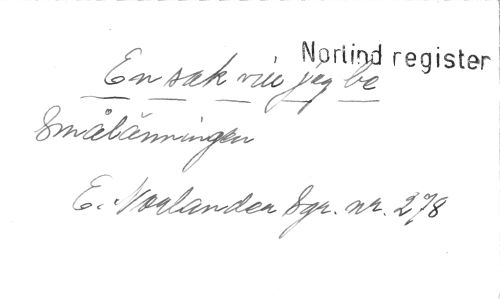 Norlind register
En sak vill jeg be
Smålänningen
E. Norlander Sgr. nr. 278